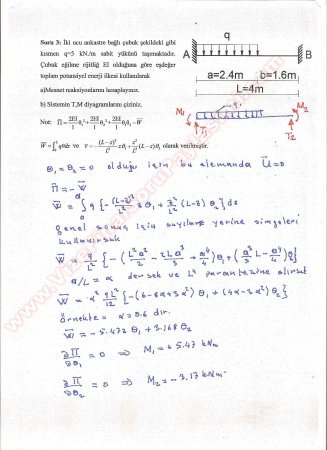 Soru 3: İki ucu ankastre bağlı çubuk şekildeki gibi
kısmen q=5 kN/m sabit yükünü taşımaktadır.
Çubuk eğilme rijitliği EI olduğuna göre eşdeğer
toplam potansiyel enerji ilkesi kullanılarak
a)Mesnet reaksiyonlarını hesaplayınız.
b) Sistemin T,M diyagramlarını çiziniz.
q
A
B
a=2.4m b=1.6m
L=4m
M₁
q
M₂
T₁
T₂
Not: Π = 2EI/l θ₁² + 2EI/l θ₂² + 2EI/l θ₁θ₂ - W̅
W̅ = ∫₀ᴸ qvdz ve v = -(L-z)²/L² zθ₁ + z²/L² (L-z)θ₂ olarak verilmiştir.
θ₁=θ₂=0 olduğu için bu elemanda U̅=0
Π = -W̅
W̅ = ∫₀ᵃ q {-(L-z)²/L² z θ₁ + z²/L² (L-z) θ₂} dz
genel sonuç için sayılar yerine simgeleri
kullanırsak
W̅ = q/L² {-(L²a²/2 - 2La³/3 + a⁴/4) θ₁ + (a³/3 L - a⁴/4) θ₂}
a/L = α dersek ve L² parantezine alırsak
W̅ = α² qL²/12 {-(6-8α+3α²) θ₁ + (4α-3α²) θ₂}
örnekte α = 0.6 dır.
W̅ = -5.472 θ₁ + 3.168 θ₂
∂Π/∂θ₁ = 0 ⇒ M₁ = +5.47 kNm
∂Π/∂θ₂ = 0 ⇒ M₂ = -3.17 kNm